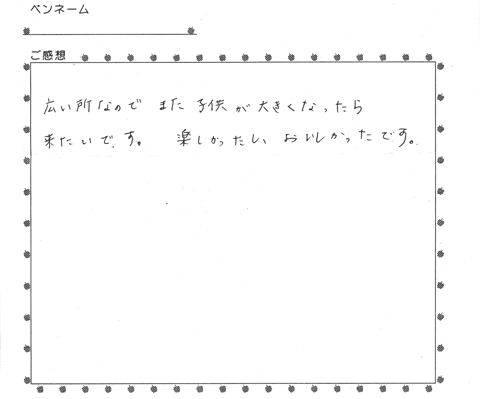 ペンネーム
ご感想
広い所なので また 子供が大きくなったら
来たいです。 楽しかったし、おいしかったです。